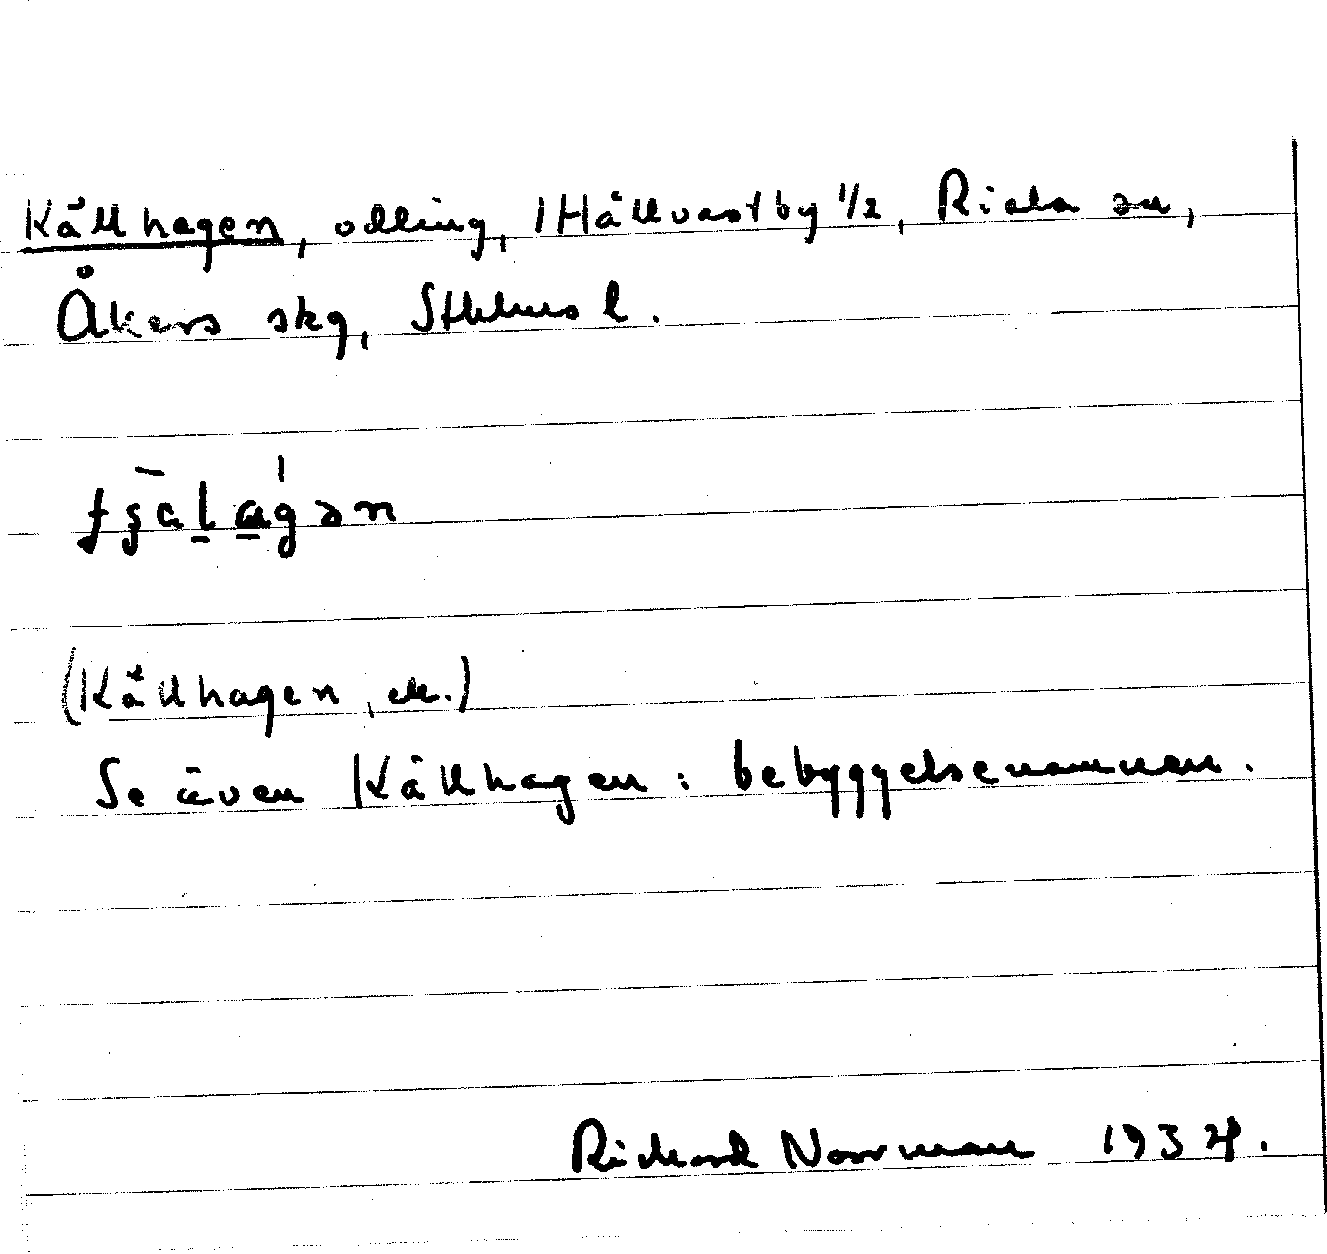 Källhagen, odling, Hällvastby 1/2, Riala sn,
Åkers skg, Sthlms l.
(Källhagen, ek.)
Se även Källhagen: bebyggelsenamnen.
Richard Norrman 1934.